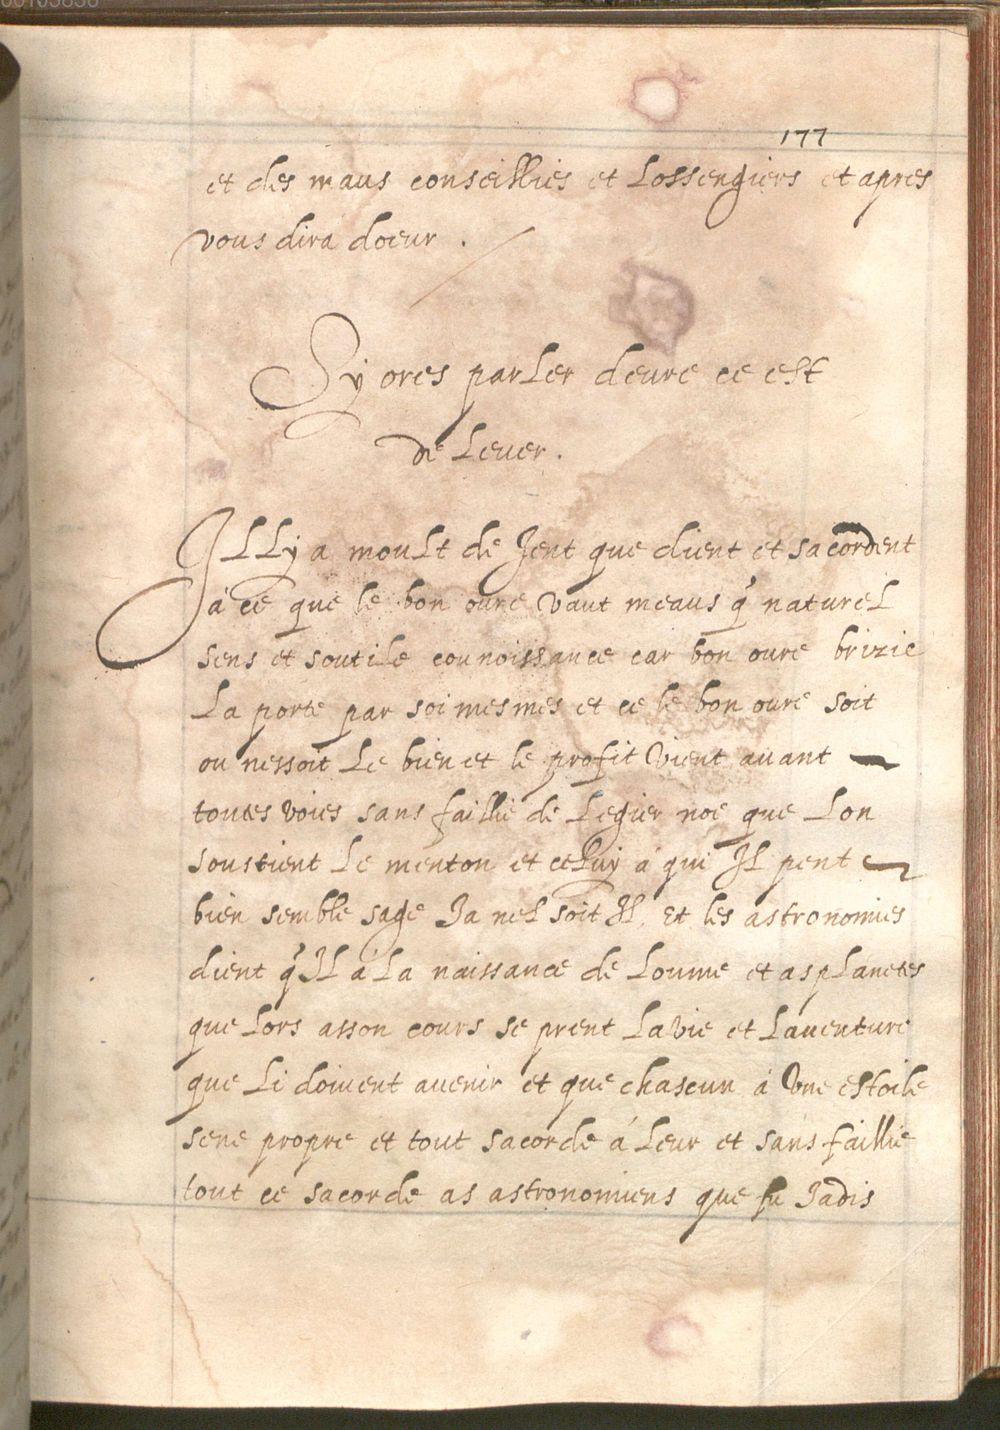 177
et des maus conseillies et Lossengiers et apres
vous dira doeur .
Sy ores parLer deure ce est
de Leuer .
ILLy a mouLt de Jent que dient et sacordent
a ce que le bon oure vaut meaus q̃ natureL
sens et soutiLe counoissance car bon oure brizie
La porte par soi mesmes et ce le bon oure soit
ou nessoit Le bien et le profit vient auant
toutes voies sans faillie de Legier noe que Lon
soustient Le menton et ceLuy a qui JL pent
bien semble sage Ja neL soit JL. Et les astronomies
dient q̃ JL a La naissance de Loume et as pLanetes
que Lors asson cours se prent La vie et Lauenture
que Li doiuent auenir et que chascun a vne estoile
sene propre et tout sacorde a Leur et sans faillie
tout ce sacorde as astronomiens que fu Jadis